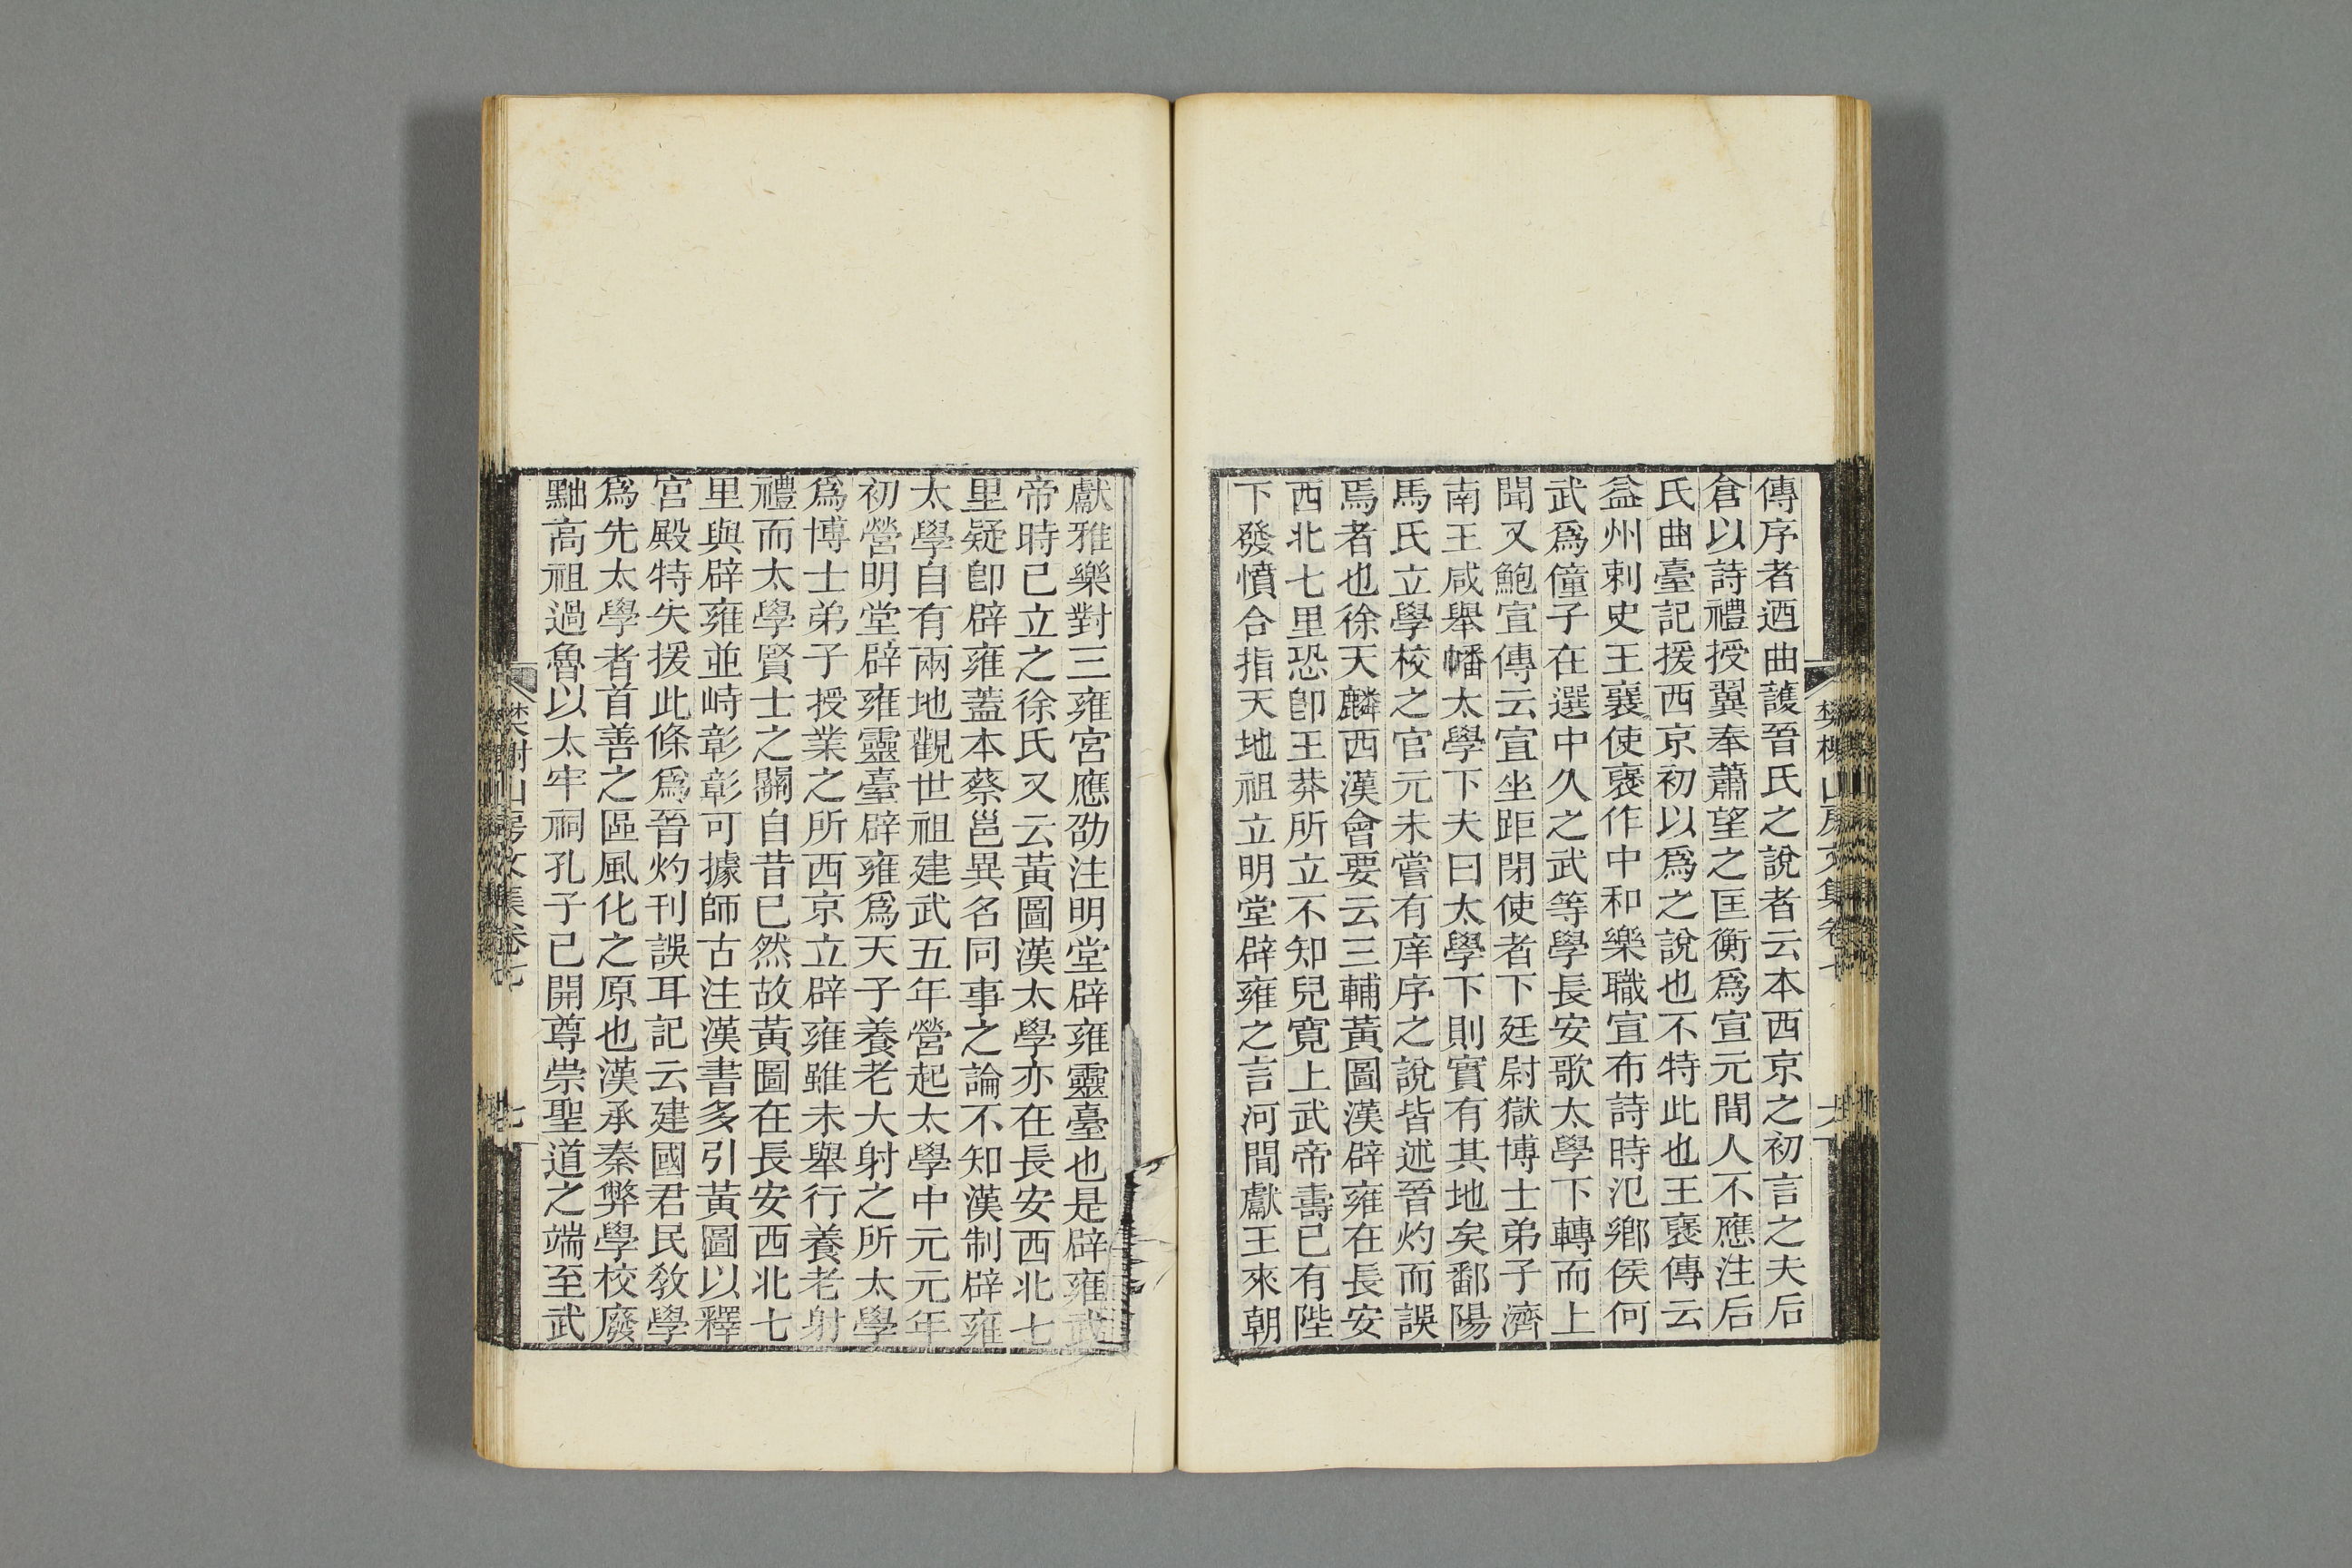 傳序者迺曲護晉氏之說者云本西京之初言之夫后
倉以詩禮授翼奉蕭望之匡衡爲宣元間人不應注后
氏曲臺記援西京初以爲之說也不特此也王襃傳云
益州刺史王襄使襃作中和樂職宣布詩時氾鄉侯何
武爲僮子在選中久之武等學長安歌太學下轉而上
聞又鮑宣傳云宣坐距閉使者下廷尉獄博士弟子濟
南王咸舉幡太學下夫曰太學下則實有其地矣鄱陽
馬氏立學校之官元未嘗有庠序之說皆述晉灼而誤
焉者也徐天麟西漢會要云三輔黃圖漢辟雍在長安
西北七里恐卽王莽所立不知兒寬上武帝壽已有陛
下發憤合指天地祖立明堂辟雍之言河間獻王來朝
樊榭山房文集卷七
六
獻雅樂對三雍宮應劭注明堂辟雍靈臺也是辟雍武
帝時已立之徐氏又云黃圖漢太學亦在長安西北七
里疑卽辟雍蓋本蔡邕異名同事之論不知漢制辟雍
太學自有兩地觀世祖建武五年營起太學中元元年
初營明堂辟雍靈臺辟雍爲天子養老大射之所太學
爲博士弟子授業之所西京立辟雍雖未舉行養老射
禮而太學賢士之關自昔已然故黃圖在長安西北七
里與辟雍並峙彰彰可據師古注漢書多引黃圖以釋
宮殿特失援此條爲晉灼刊誤耳記云建國君民敎學
爲先太學者首善之區風化之原也漢承秦弊學校廢
黜高祖過魯以太牢祠孔子已開尊崇聖道之端至武
樊榭山房文集卷七
七